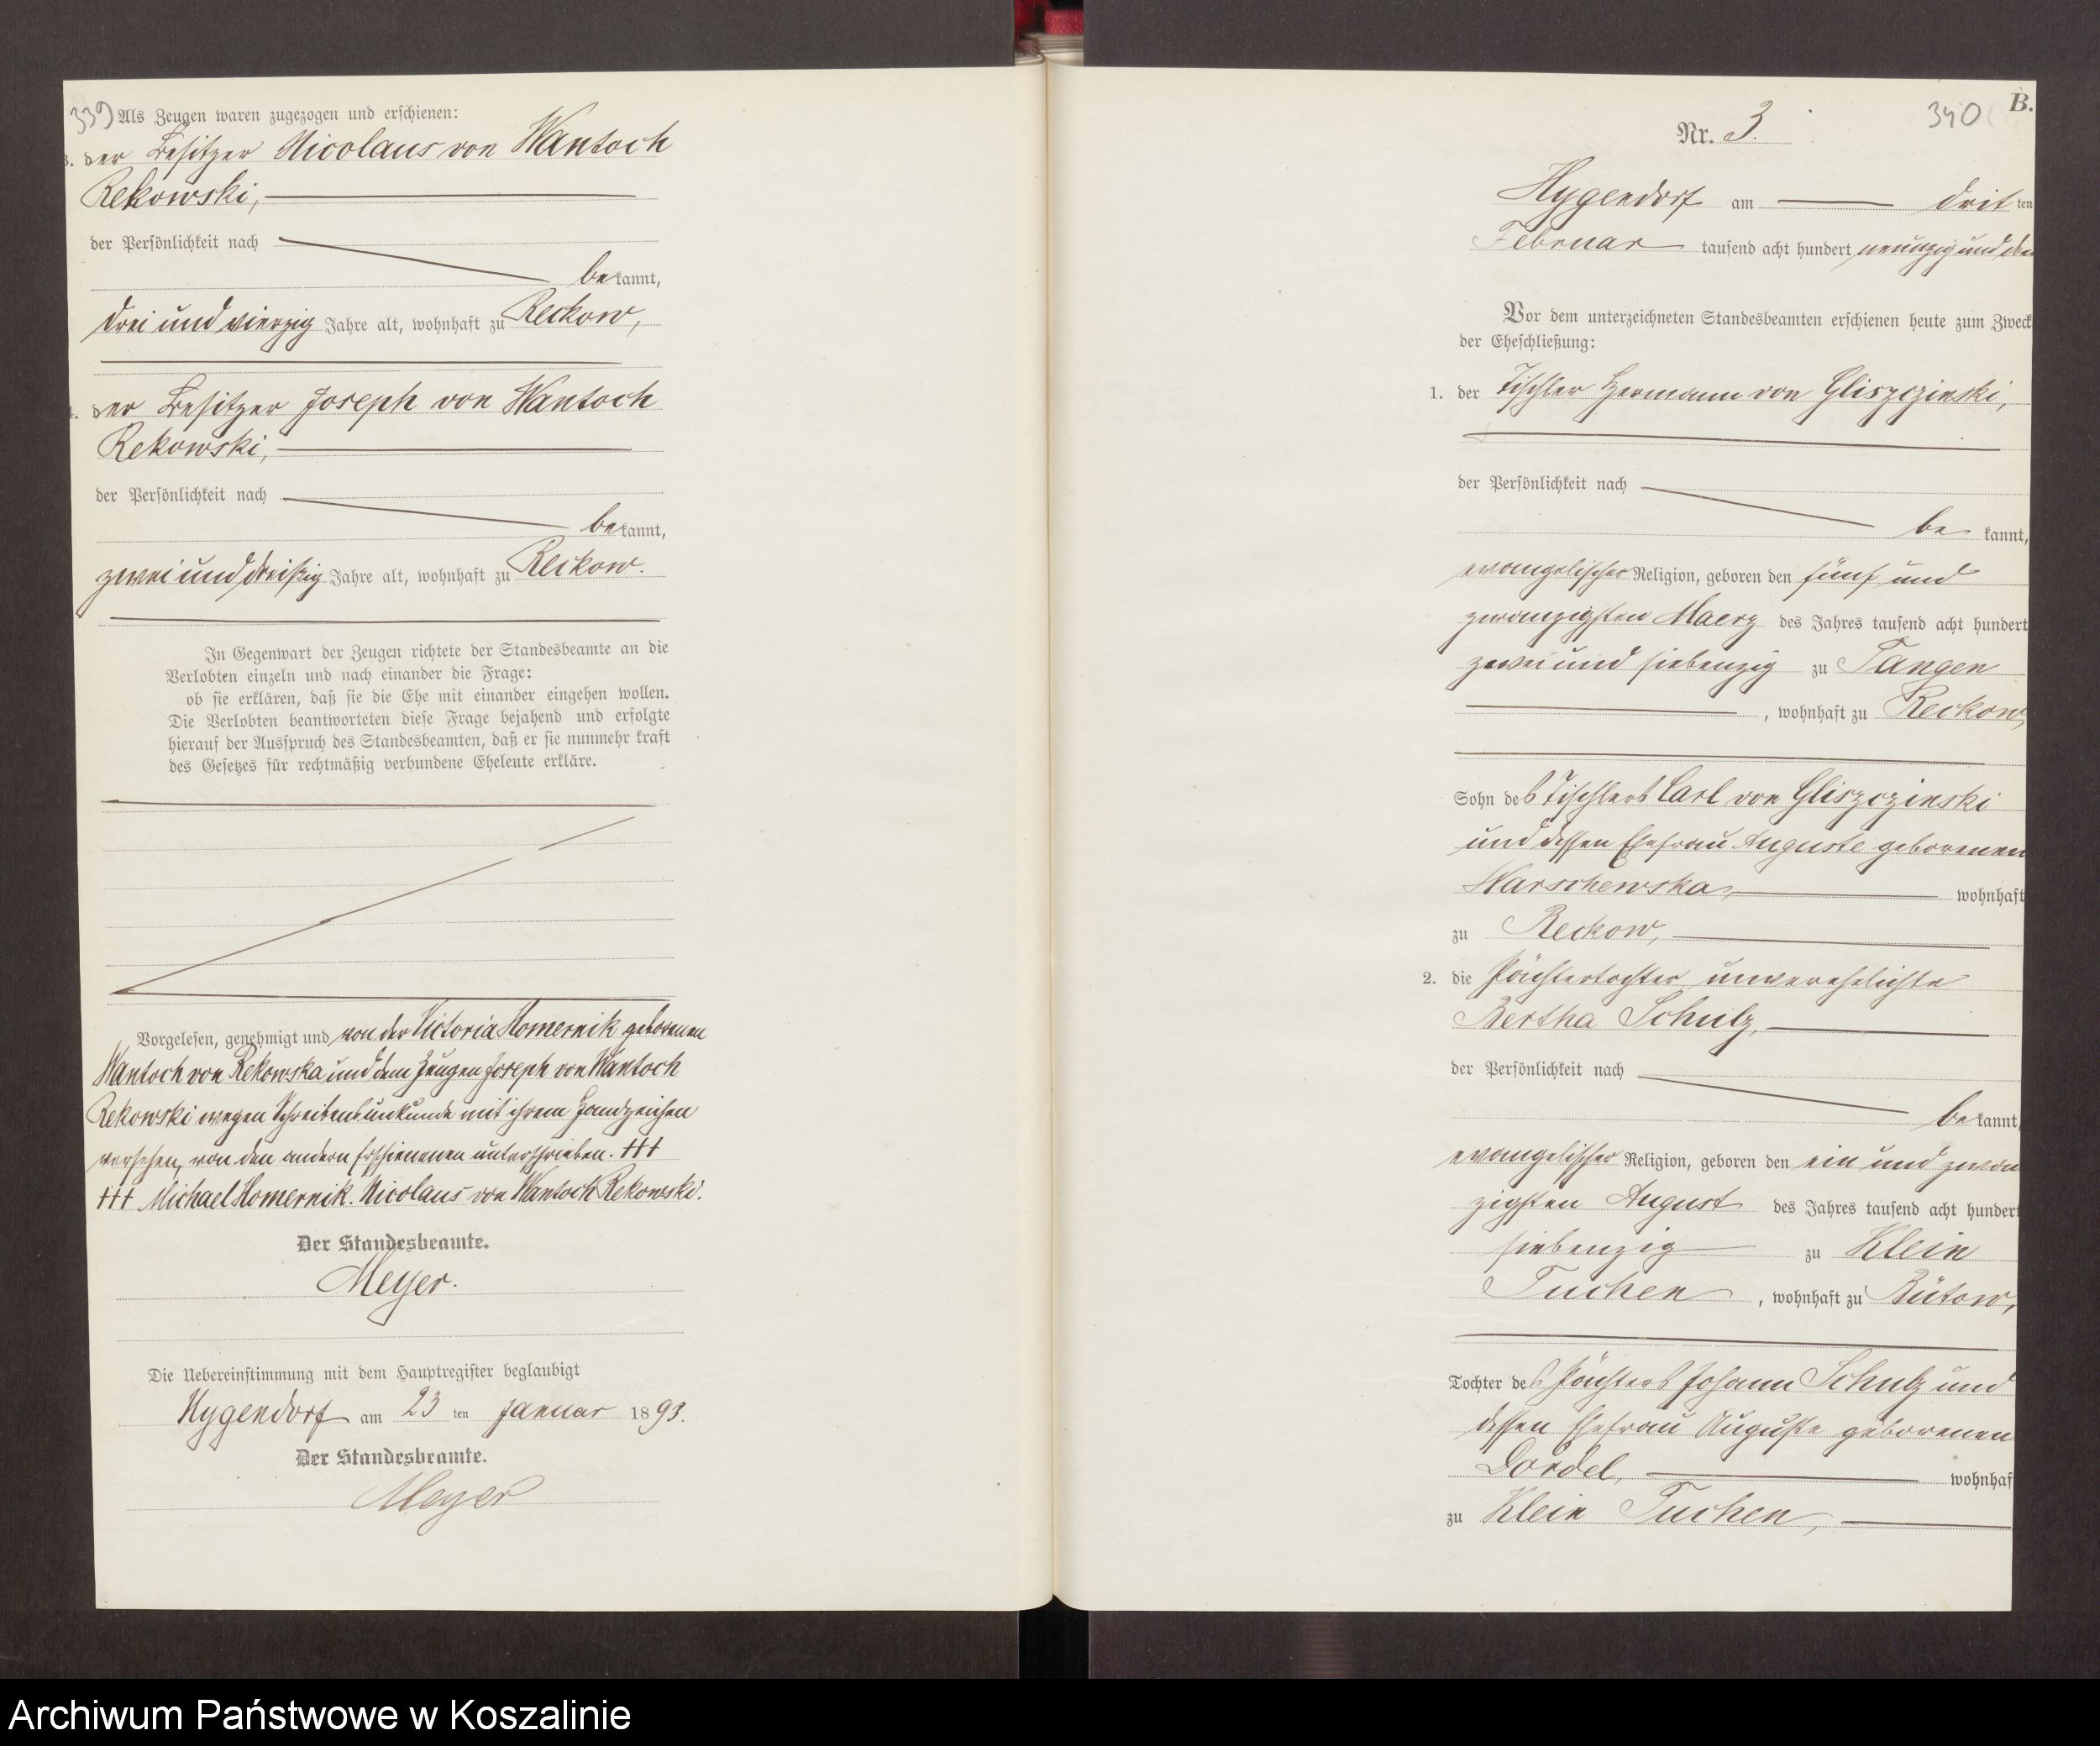 339
Als Zeugen waren zugezogen und erschienen:
3. der Besitzer Nicolaus von Wantoch
Rekowski,
der Persönlichkeit nach
bekannt,
drei und vierzig Jahre alt, wohnhaft zu Reckow,
4. der Besitzer Joseph von Wantoch
Rekowski,
der Persönlichkeit nach
bekannt,
zwei und dreißig Jahre alt, wohnhaft zu Reckow.
In Gegenwart der Zeugen richtete der Standesbeamte an die
Verlobten einzeln und nach einander die Frage:
ob sie erklären, daß sie die Ehe mit einander eingehen wollen.
Die Verlobten beantworteten diese Frage bejahend und erfolgte
hierauf der Ausspruch des Standesbeamten, daß er sie nunmehr kraft
des Gesetzes für rechtmäßig verbundene Eheleute erkläre.
Vorgelesen, genehmigt und von der Victoria Homernik geborenen
Wantoch von Rekowska und dem Zeugen Joseph von Wantoch
Rekowski wegen Schreibensunkunde mit ihrem Handzeichen
versehen, von den andern Erschienenen unterschrieben. +++
+++ Michael Homernik. Nicolaus von Wantoch Rekowski.
Der Standesbeamte.
Meyer.
Die Uebereinstimmung mit dem Hauptregister beglaubigt
Hygendorf am 23 ten Januar 1893.
Der Standesbeamte.
Meyer
B.
340
Nr. 3.
Hygendorf am dritten
Februar tausend acht hundert neunzig und drei
Vor dem unterzeichneten Standesbeamten erschienen heute zum Zweck
der Eheschließung:
1. der Tischler Hermann von Gliszczinski,
der Persönlichkeit nach
bekannt,
evangelischer Religion, geboren den fünf und
zwanzigsten Maerz des Jahres tausend acht hundert
zwei und siebenzig zu Tangen
, wohnhaft zu Reckow,
Sohn des Tischlers Carl von Gliszczinski
und dessen Ehefrau Auguste geborenen
Warschewska, wohnhaft
zu Reckow,
2. die Pächtertochter, unverehelichte
Bertha Schulz,
der Persönlichkeit nach
bekannt,
evangelischer Religion, geboren den ein und zwan
zigsten August des Jahres tausend acht hundert
siebenzig zu Klein
Tuchen, wohnhaft zu Bütow,
Tochter des Pächters Johann Schulz und
dessen Ehefrau Auguste geborenen
Dordel, wohnhaf
zu Klein Tuchen,
Archiwum Państwowe w Koszalinie